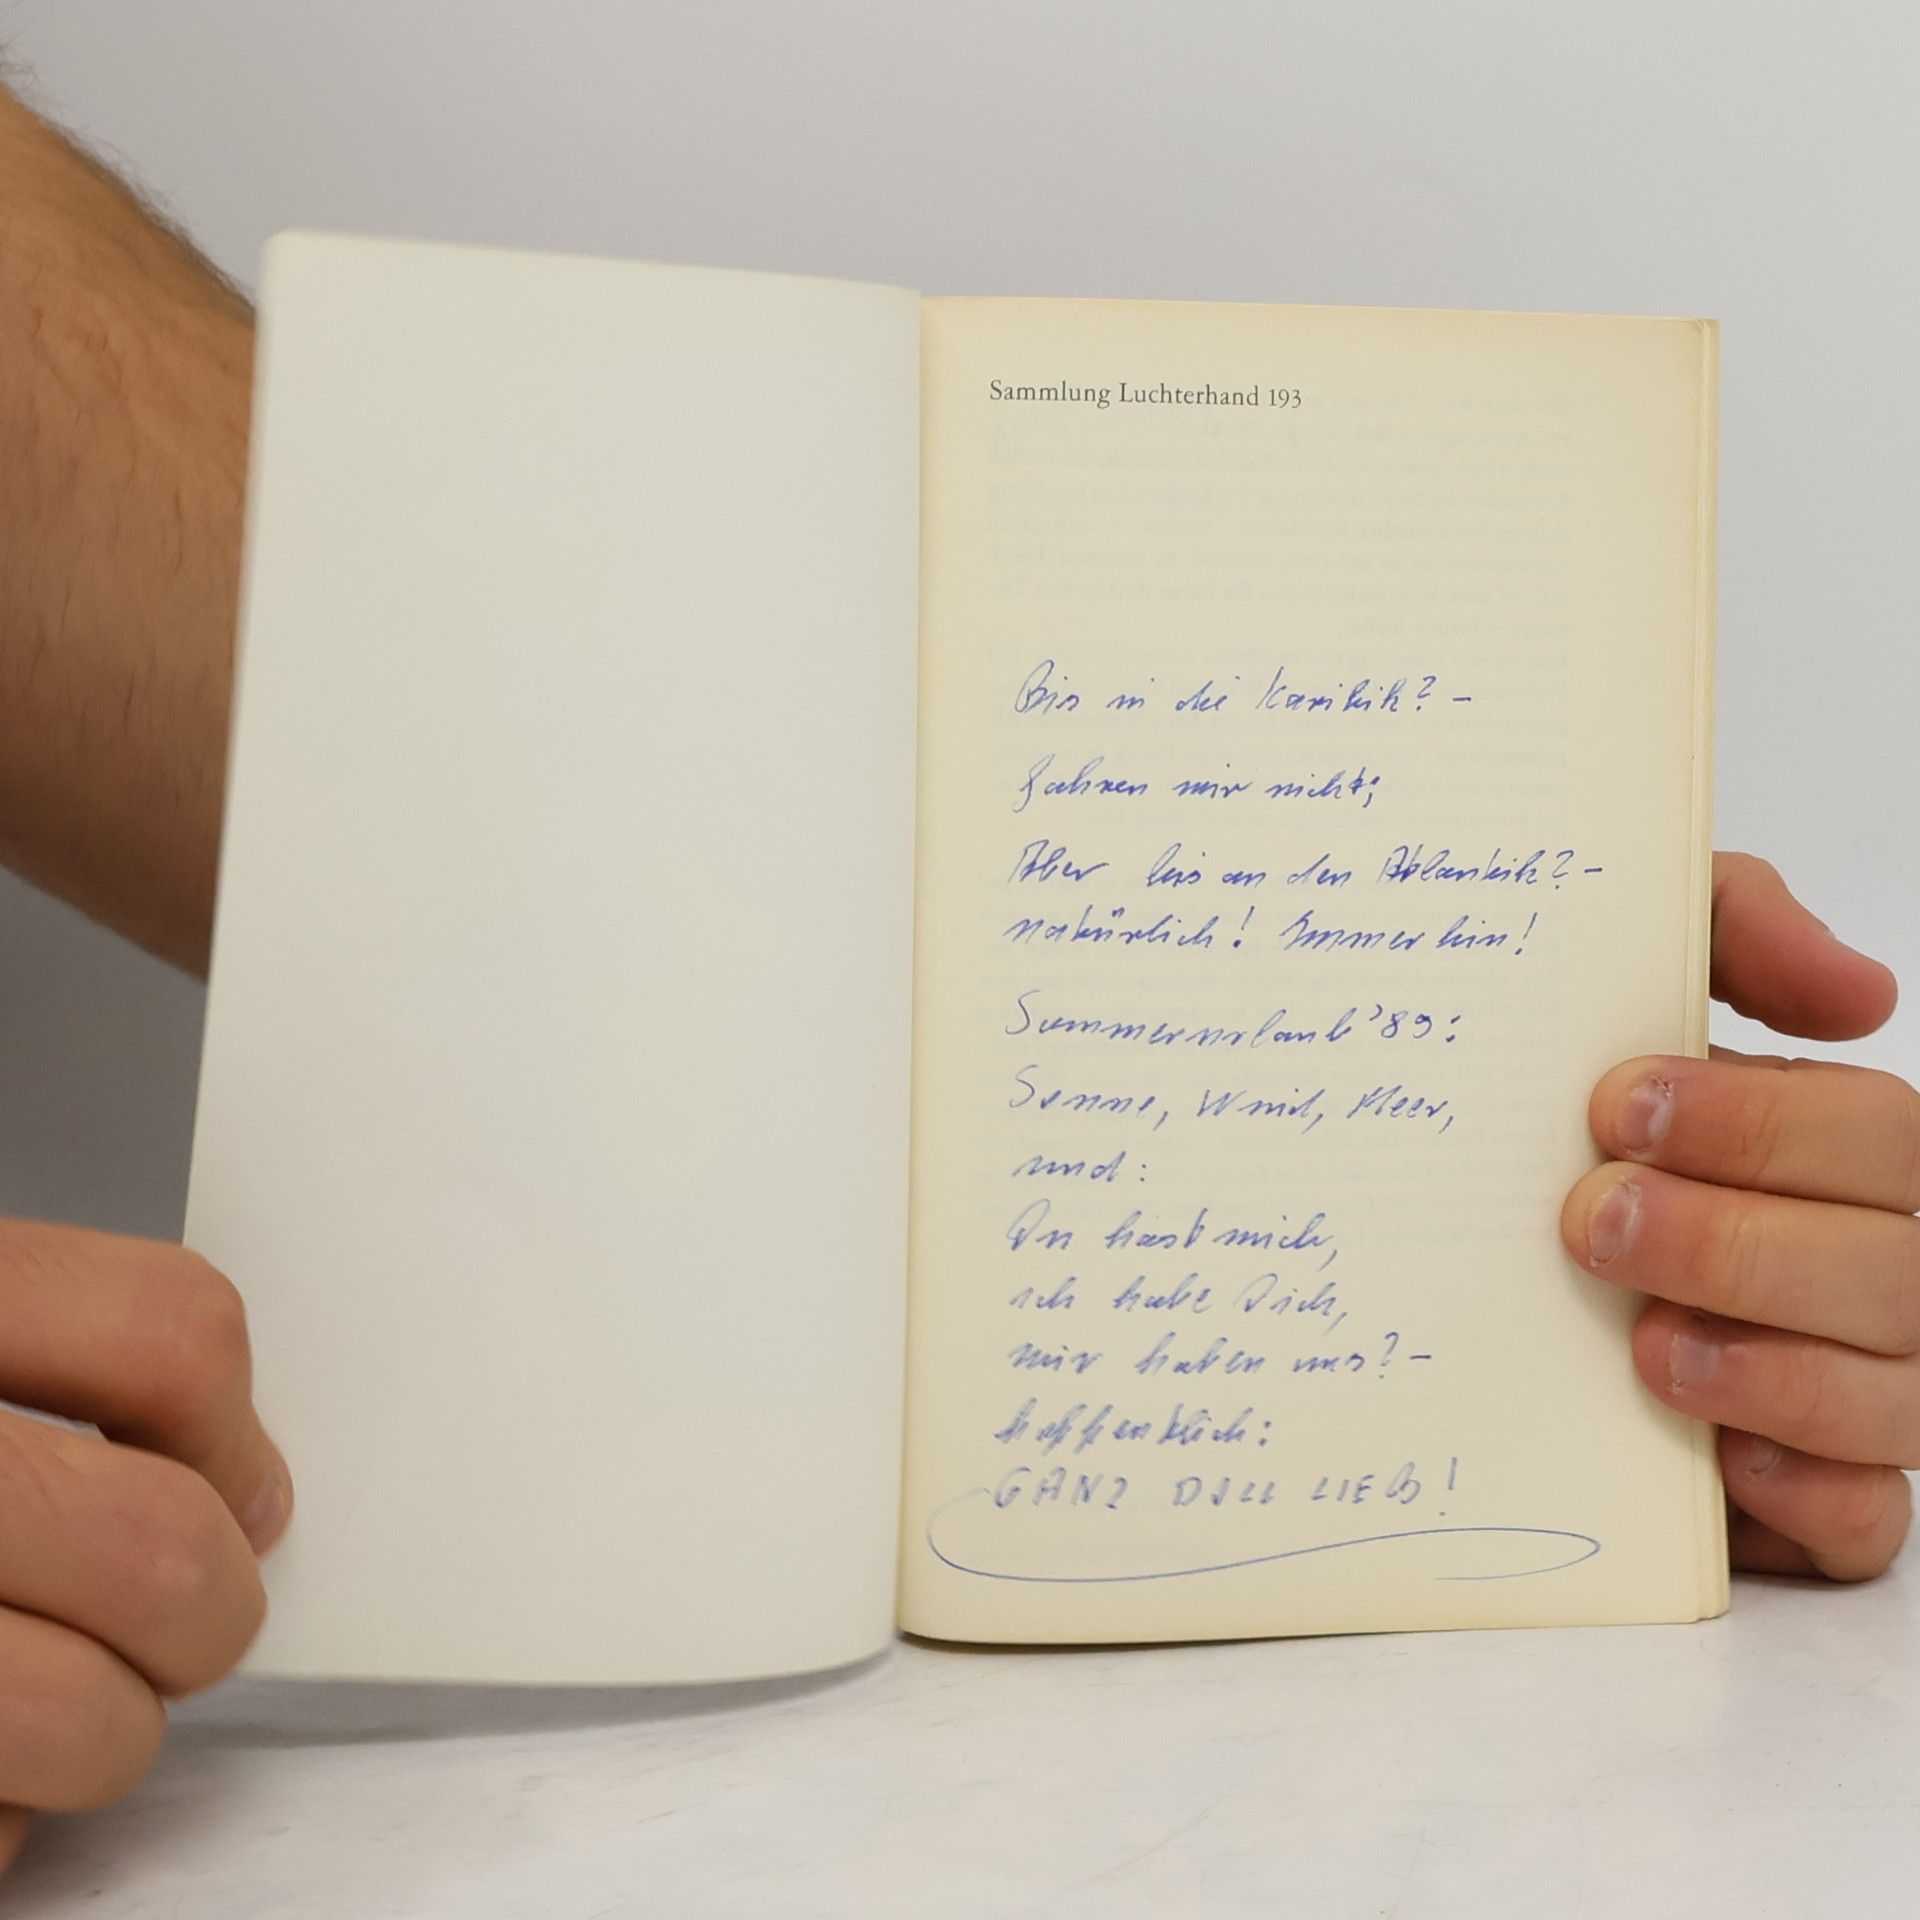 Sammlung Luchterhand 193
Bis in die Karibik? –
fahren wir nicht;
Aber bis an den Atlantik? –
natürlich! Immerhin!
Sommerurlaub '89:
Sonne, Wind, Meer,
und:
Du hast mich,
ich habe Dich,
wir haben uns? –
hoffentlich:
GANZ DOLL LIEB!